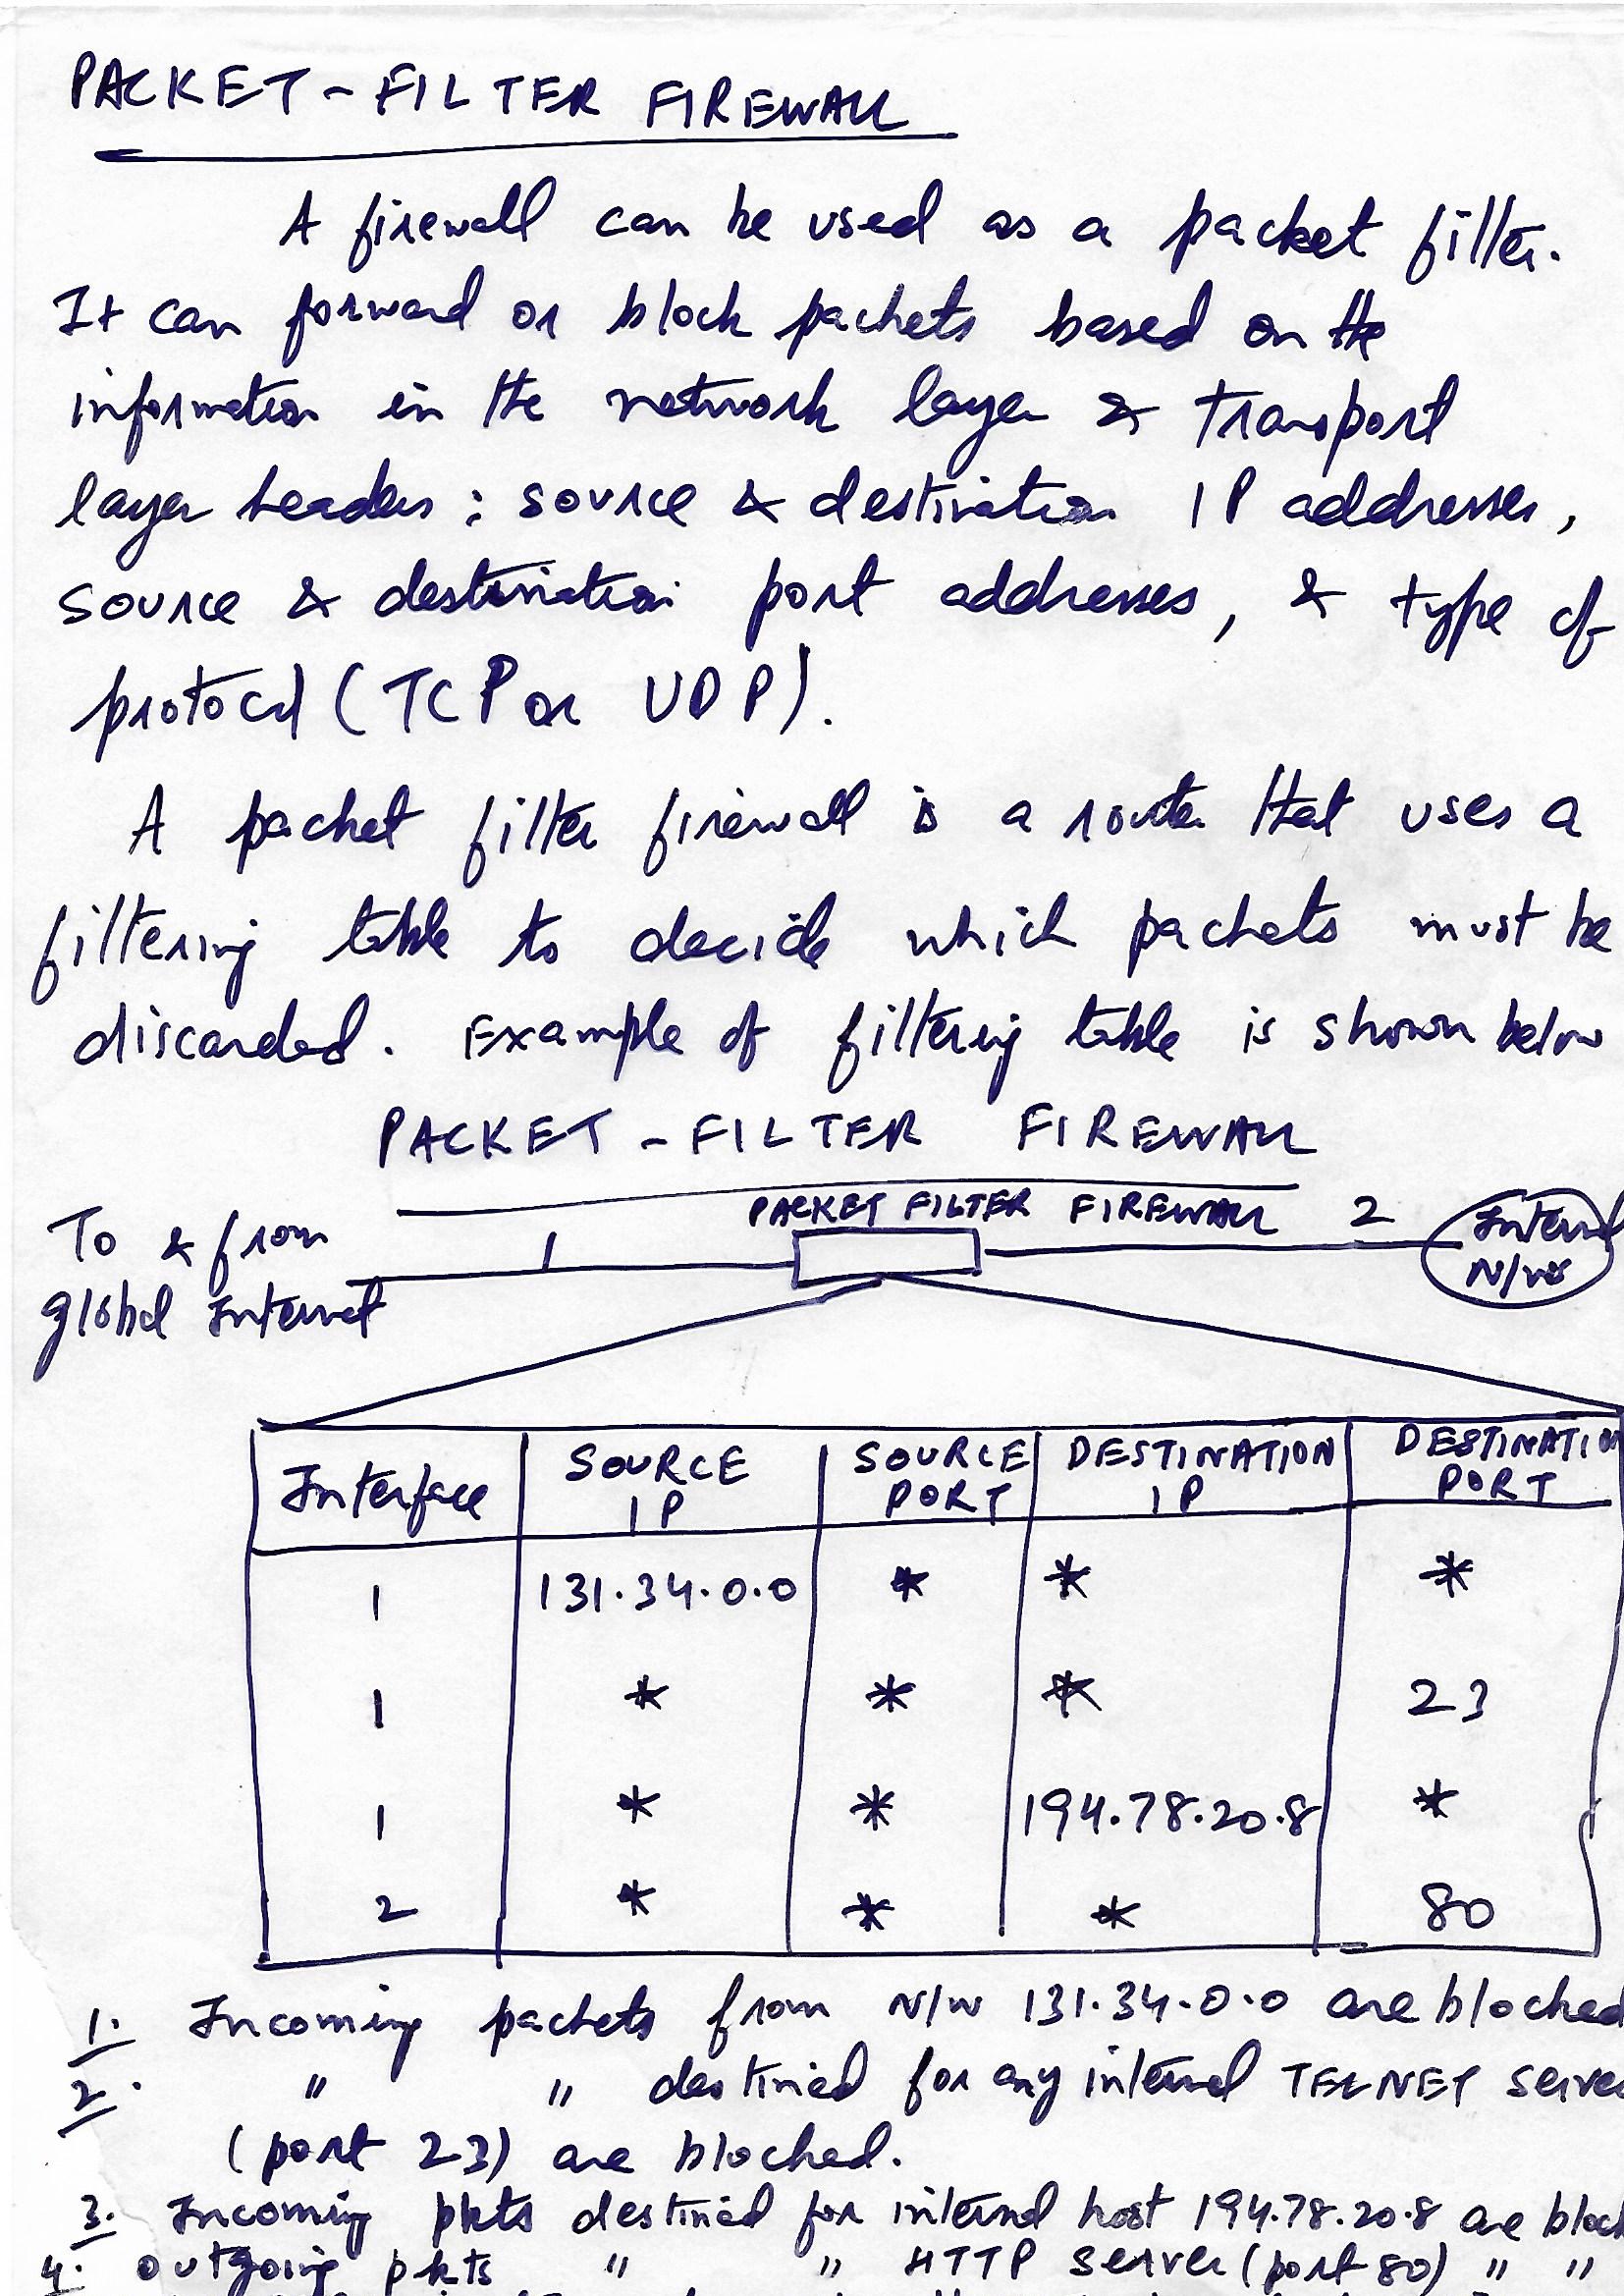 PACKET-FILTER FIREWALL
A firewall can be used as a packet filter.
It can forward or block packets based on the
information in the network layer & transport
layer headers : source & destination IP addresses,
source & destination port addresses, & type of
protocol (TCP or UDP).
A packet filter firewall is a router that uses a
filtering table to decide which packets must be
discarded. Example of filtering table is shown below
PACKET-FILTER FIREWALL
To & from
global Internet
1
PACKET FILTER FIREWALL
2
Internal
N/w
Interface SOURCE IP SOURCE PORT DESTINATION IP DESTINATION PORT
1 131.34.0.0 * * *
1 * * * 23
1 * * 194.78.20.8 *
2 * * * 80
1. Incoming packets from N/w 131.34.0.0 are blocked
2. " " destined for any internal TELNET server
(port 23) are blocked.
3. Incoming pkts destined for internal host 194.78.20.8 are block
4. outgoing pkts " " HTTP server (port 80) " "